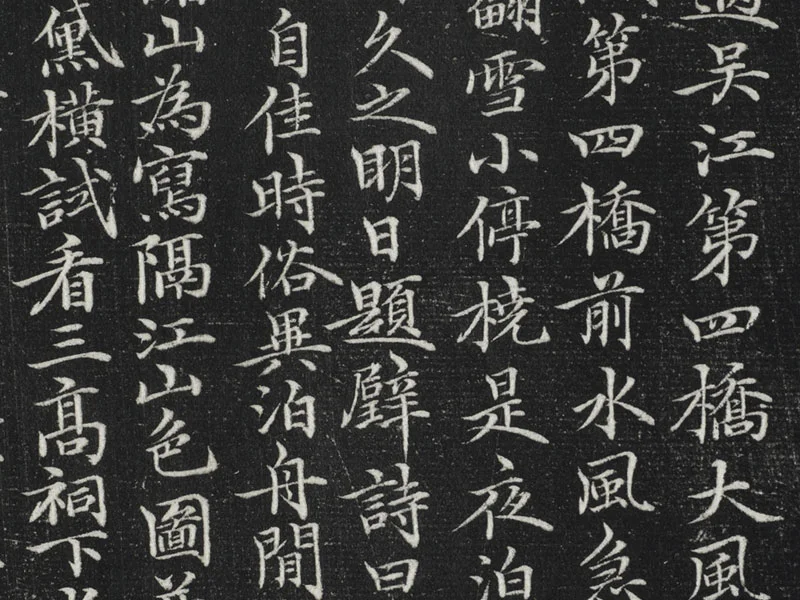 過吳江第四橋大風
第四橋前水風急
翻雪小停橈是夜泊
久之明日題壁詩曰
自佳時俗異泊舟閒
山為寫隔江山色圖
黛橫試看三高祠下